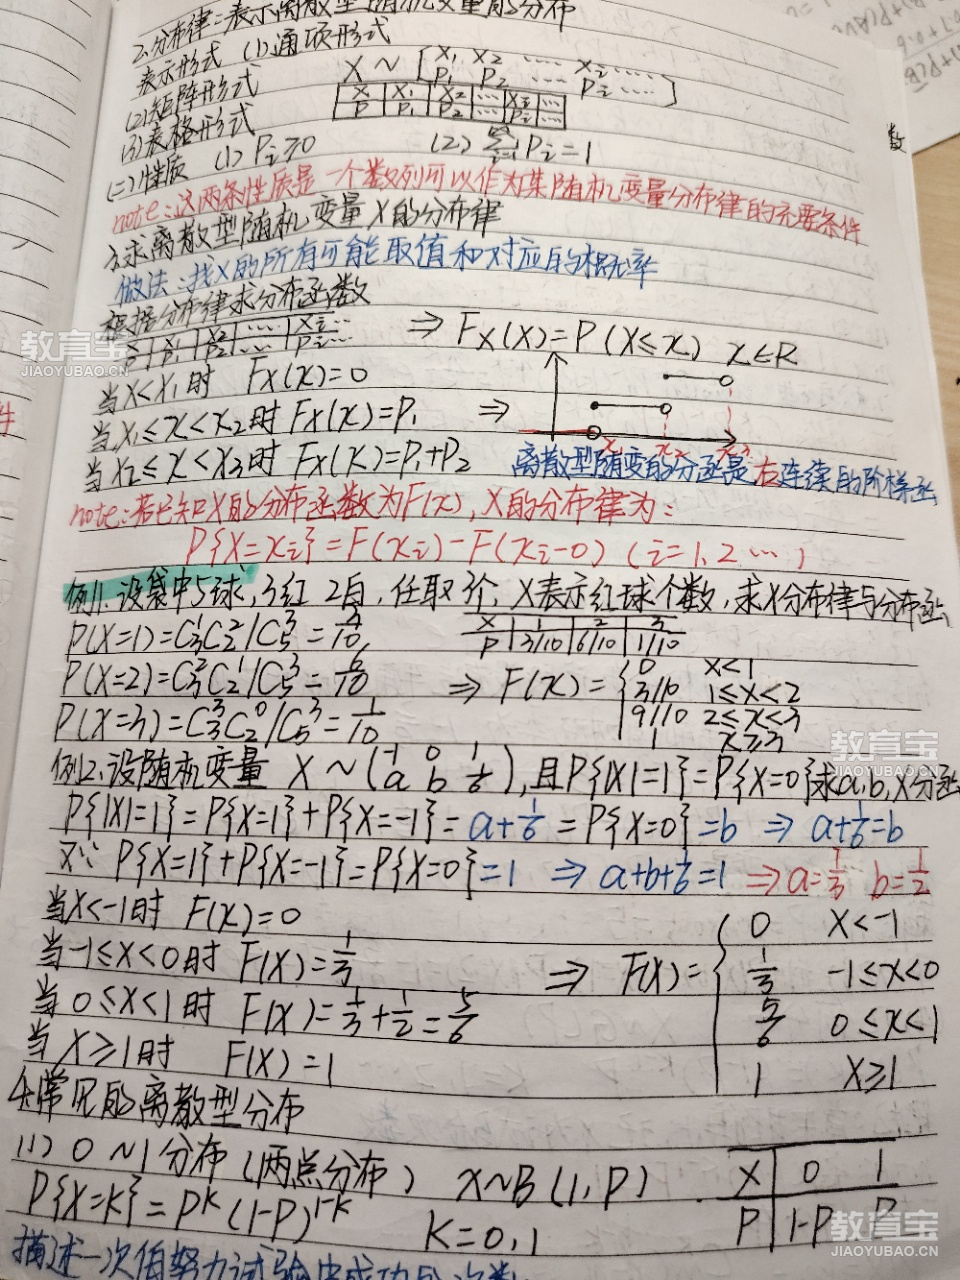 2.分布律:表示离散型随机变量的分布
表示形式 (1)通项形式
(2)矩阵形式 X ~ [X₁ X₂ …… Xᵢ ……
P₁ P₂ …… Pᵢ ……]
(3)表格形式
X | X₁ | X₂ | … | Xᵢ | …
P | P₁ | P₂ | … | Pᵢ | …
(二)性质 (1) Pᵢ≥0 (2) ∑Pᵢ=1
note:这两条性质是一个数列可以作为某随机变量分布律的充要条件
3.求离散型随机变量X的分布律
做法:找X的所有可能取值和对应的概率
根据分布律求分布函数
X | X₁ | X₂ | …… | Xᵢ …
P | P₁ | P₂ | …… | Pᵢ …
⇒ Fx(x)=P(X≤x) x∈R
当X<X₁时 Fx(x)=0
当X₁≤x<X₂时 Fx(x)=P₁ ⇒
当X₂≤x<X₃时 Fx(x)=P₁+P₂
x₁ x₂ x₃
离散型随变的分函是右连续的阶梯函
note:若已知X的分布函数为F(x),X的分布律为:
P{X=xᵢ}=F(xᵢ)-F(xᵢ-0) (i=1,2…)
例1.设袋中5球,3红2白,任取3个,X表示红球个数,求X分布律与分布函
P(X=1)=C₃¹C₂²/C₅³=3/10
X | 1 | 2 | 3
P | 3/10 | 6/10 | 1/10
P(X=2)=C₃²C₂¹/C₅³=6/10
P(X=3)=C₃³C₂⁰/C₅³=1/10
⇒ F(x)={0 X<1
3/10 1≤X<2
9/10 2≤x<3
1 x≥3
例2.设随机变量 X~(-1 0 1
a b 1/6),且P{|X|=1}=P{X=0}求a,b,X分函
P{|X|=1}=P{X=1}+P{X=-1}=a+1/6=P{X=0}=b ⇒ a+1/6=b
又∵ P{X=1}+P{X=-1}=P{X=0}=1 ⇒ a+b+1/6=1 ⇒ a=1/3 b=1/2
当X<-1时 F(x)=0
当-1≤X<0时 F(x)=1/3
当0≤X<1时 F(X)=1/3+1/2=5/6
当X≥1时 F(X)=1
⇒ F(X)={0 X<-1
1/3 -1≤X<0
5/6 0≤x<1
1 X≥1
4.常见的离散型分布
(1) 0~1分布(两点分布) X~B(1,P)
X | 0 1
P | 1-P P
P{X=K}=Pᴷ(1-P)¹⁻ᴷ K=0,1
描述一次伯努力试验中成功的次数
数
件
教育宝
JIAOYUBAO.CN
教育宝
JIAOYUBAO.CN
教育宝
JIAOYUBAO.CN